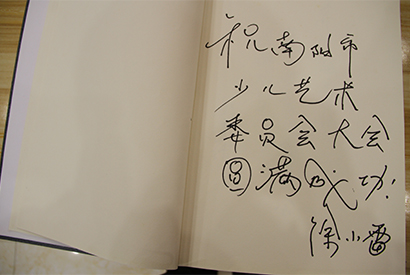 祝南阳市
少儿艺术
委员会大会
圆满成功!
徐小雷